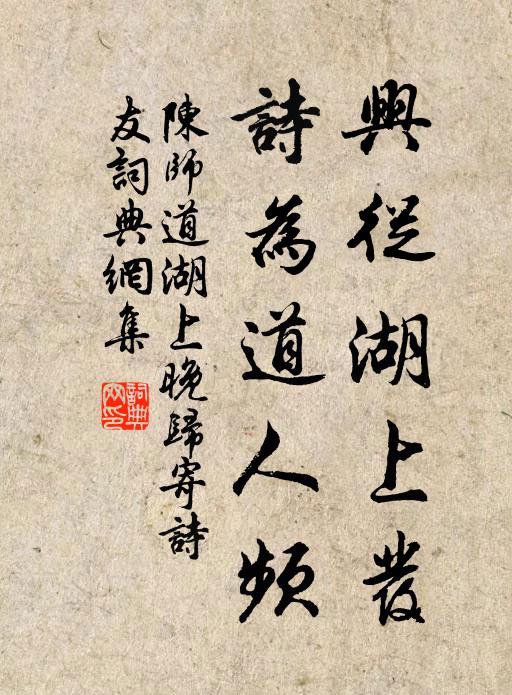 興從湖上發
詩為道人頻
陳師道湖上晚歸寄詩
友詞典網集
詞典
网印